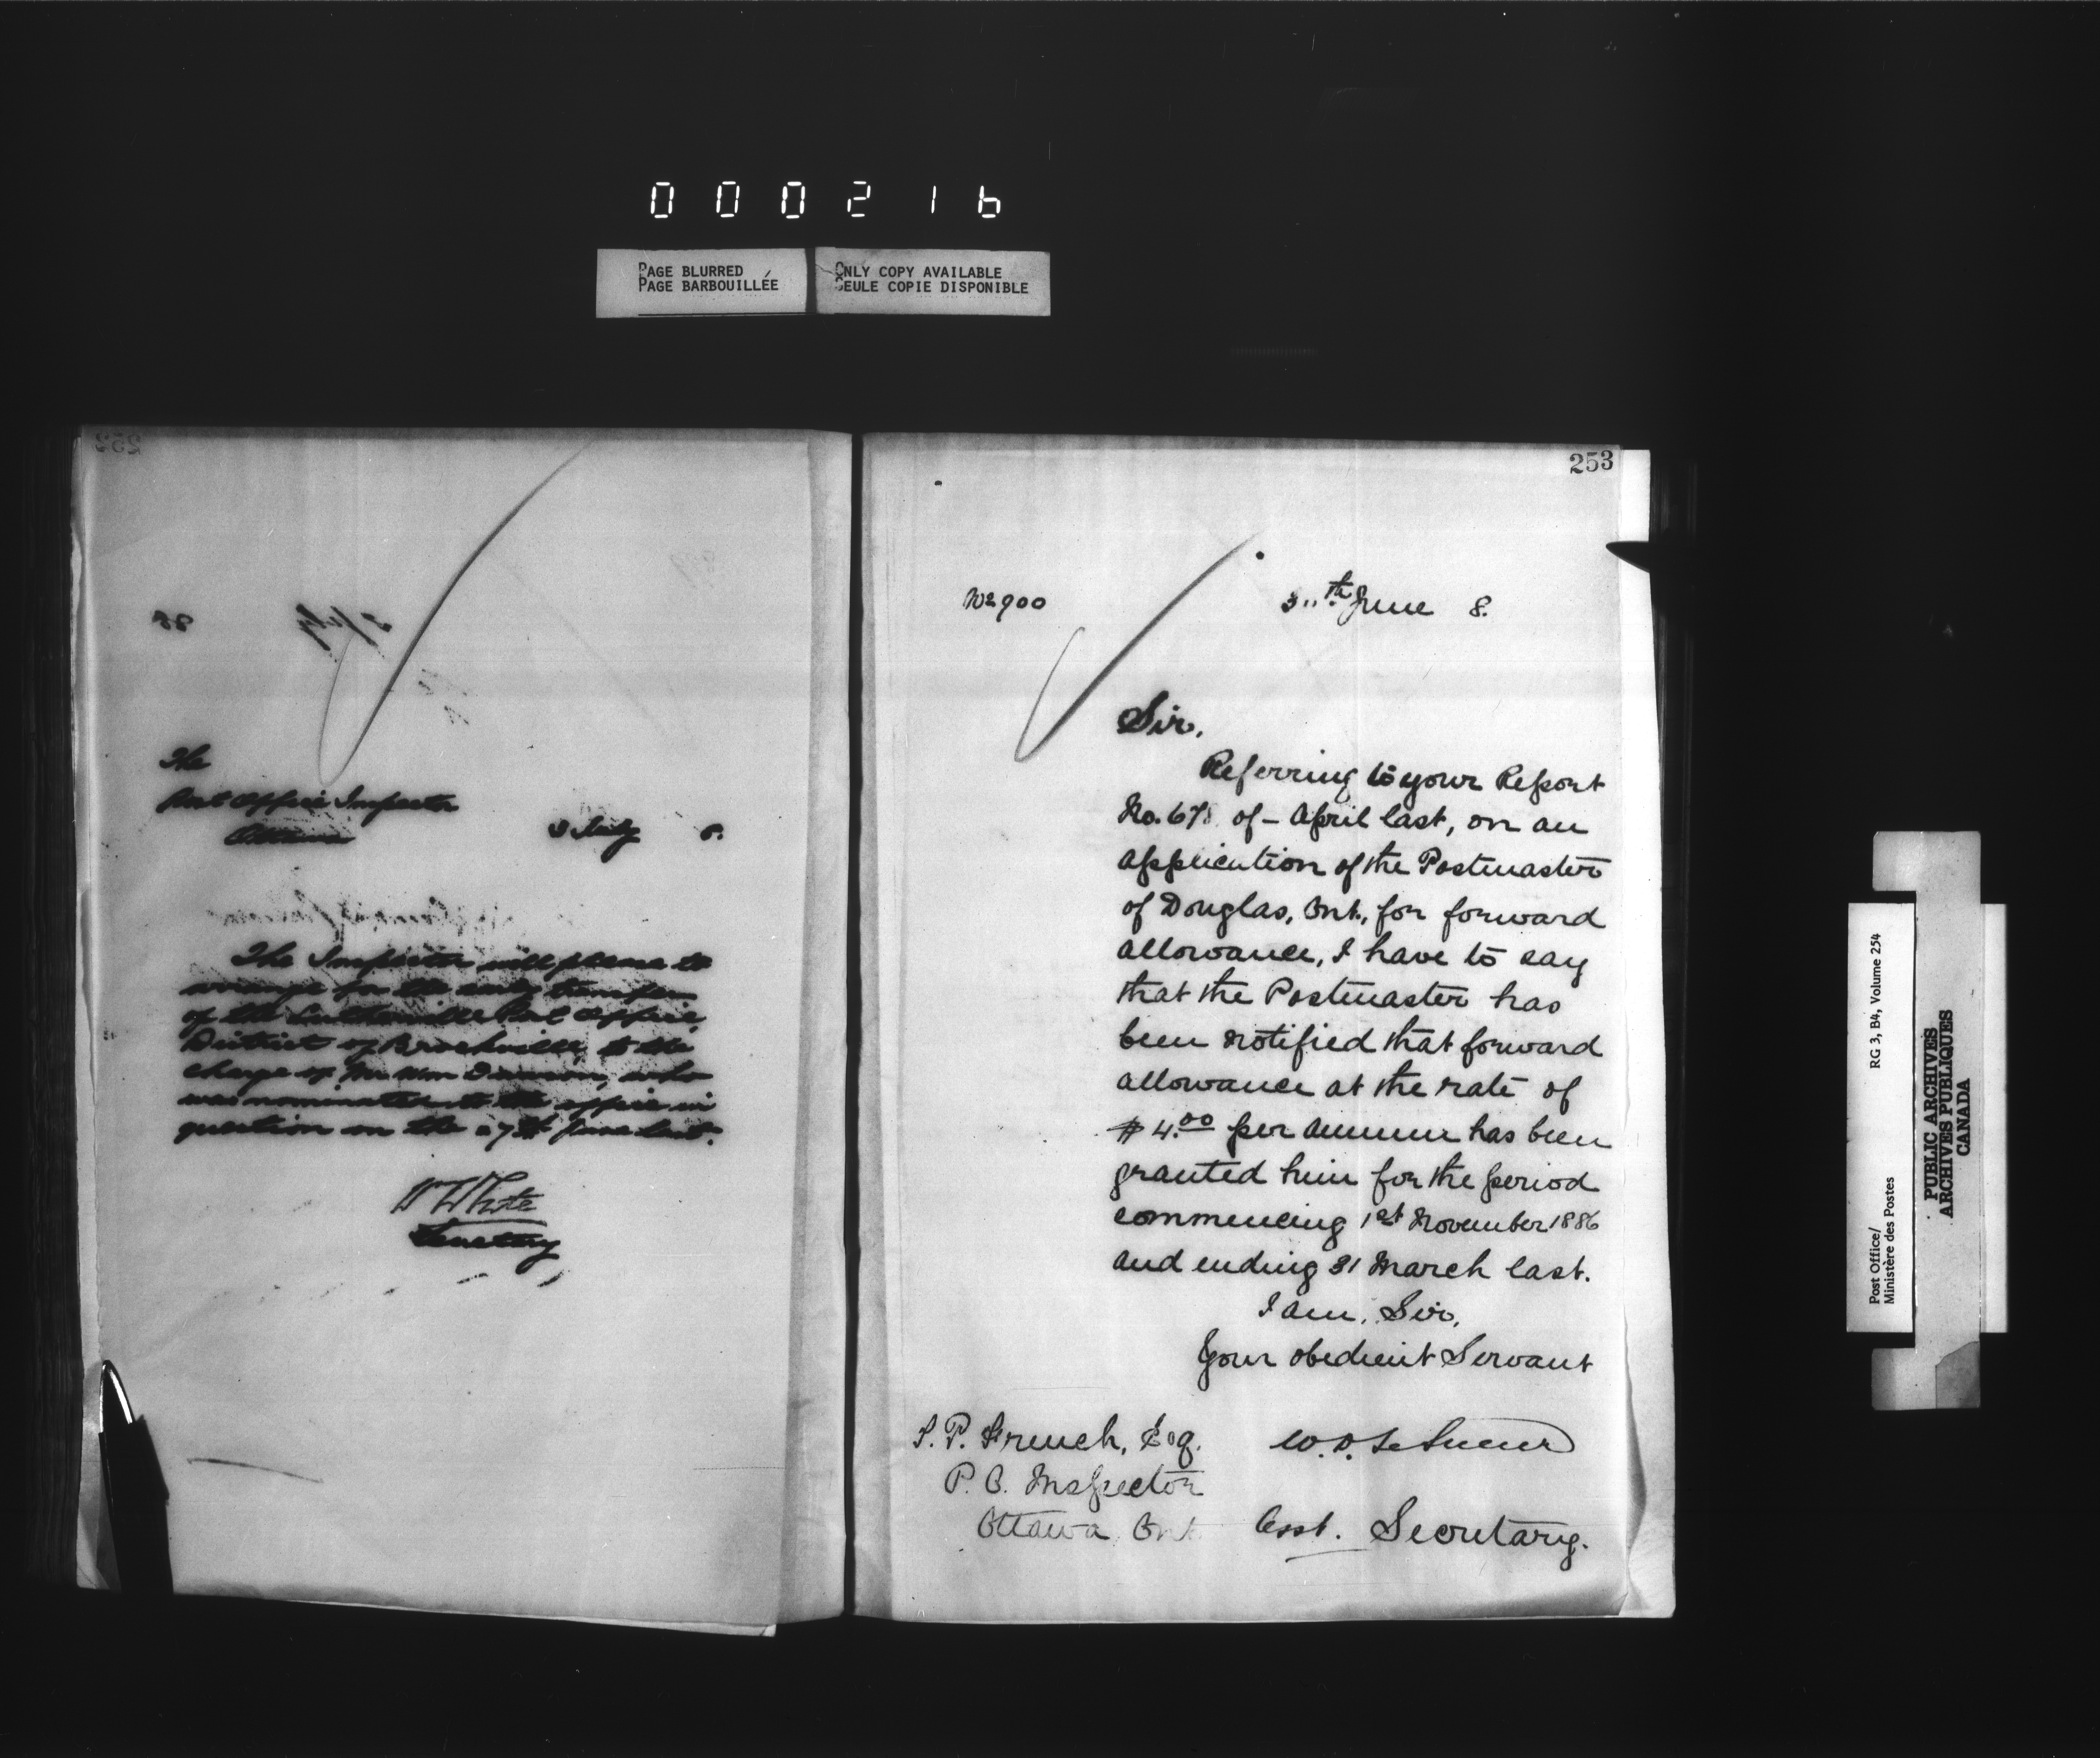 000216
PAGE BLURRED
PAGE BARBOUILLÉE
ONLY COPY AVAILABLE
SEULE COPIE DISPONIBLE
The
Post Office Inspector
Ottawa
3 July 8.
The Inspector will please to
arrange for the early transfer
of the Post Office,
District of Brockville, to the
charge of Mr Wm who
was nominated to the office in
question on the 27th June last.
W White
Secretary
253
No 900
30th June 8.
Sir,
Referring to your Report
No. 678 of - April last, on an
application of the Postmaster
of Douglas, Ont., for forward
allowance, I have to say
that the Postmaster has
been notified that forward
allowance at the rate of
$4.00 per annum has been
granted him for the period
commencing 1st November 1886
and ending 31 March last.
I am, Sir,
Your obedient Servant
W. D. LeSueur
Asst. Secretary.
T. P. French, Esq.
P. O. Inspector
Ottawa Ont
Post Office/
Ministère des Postes
RG 3, B4, Volume 254
PUBLIC ARCHIVES
ARCHIVES PUBLIQUES
CANADA